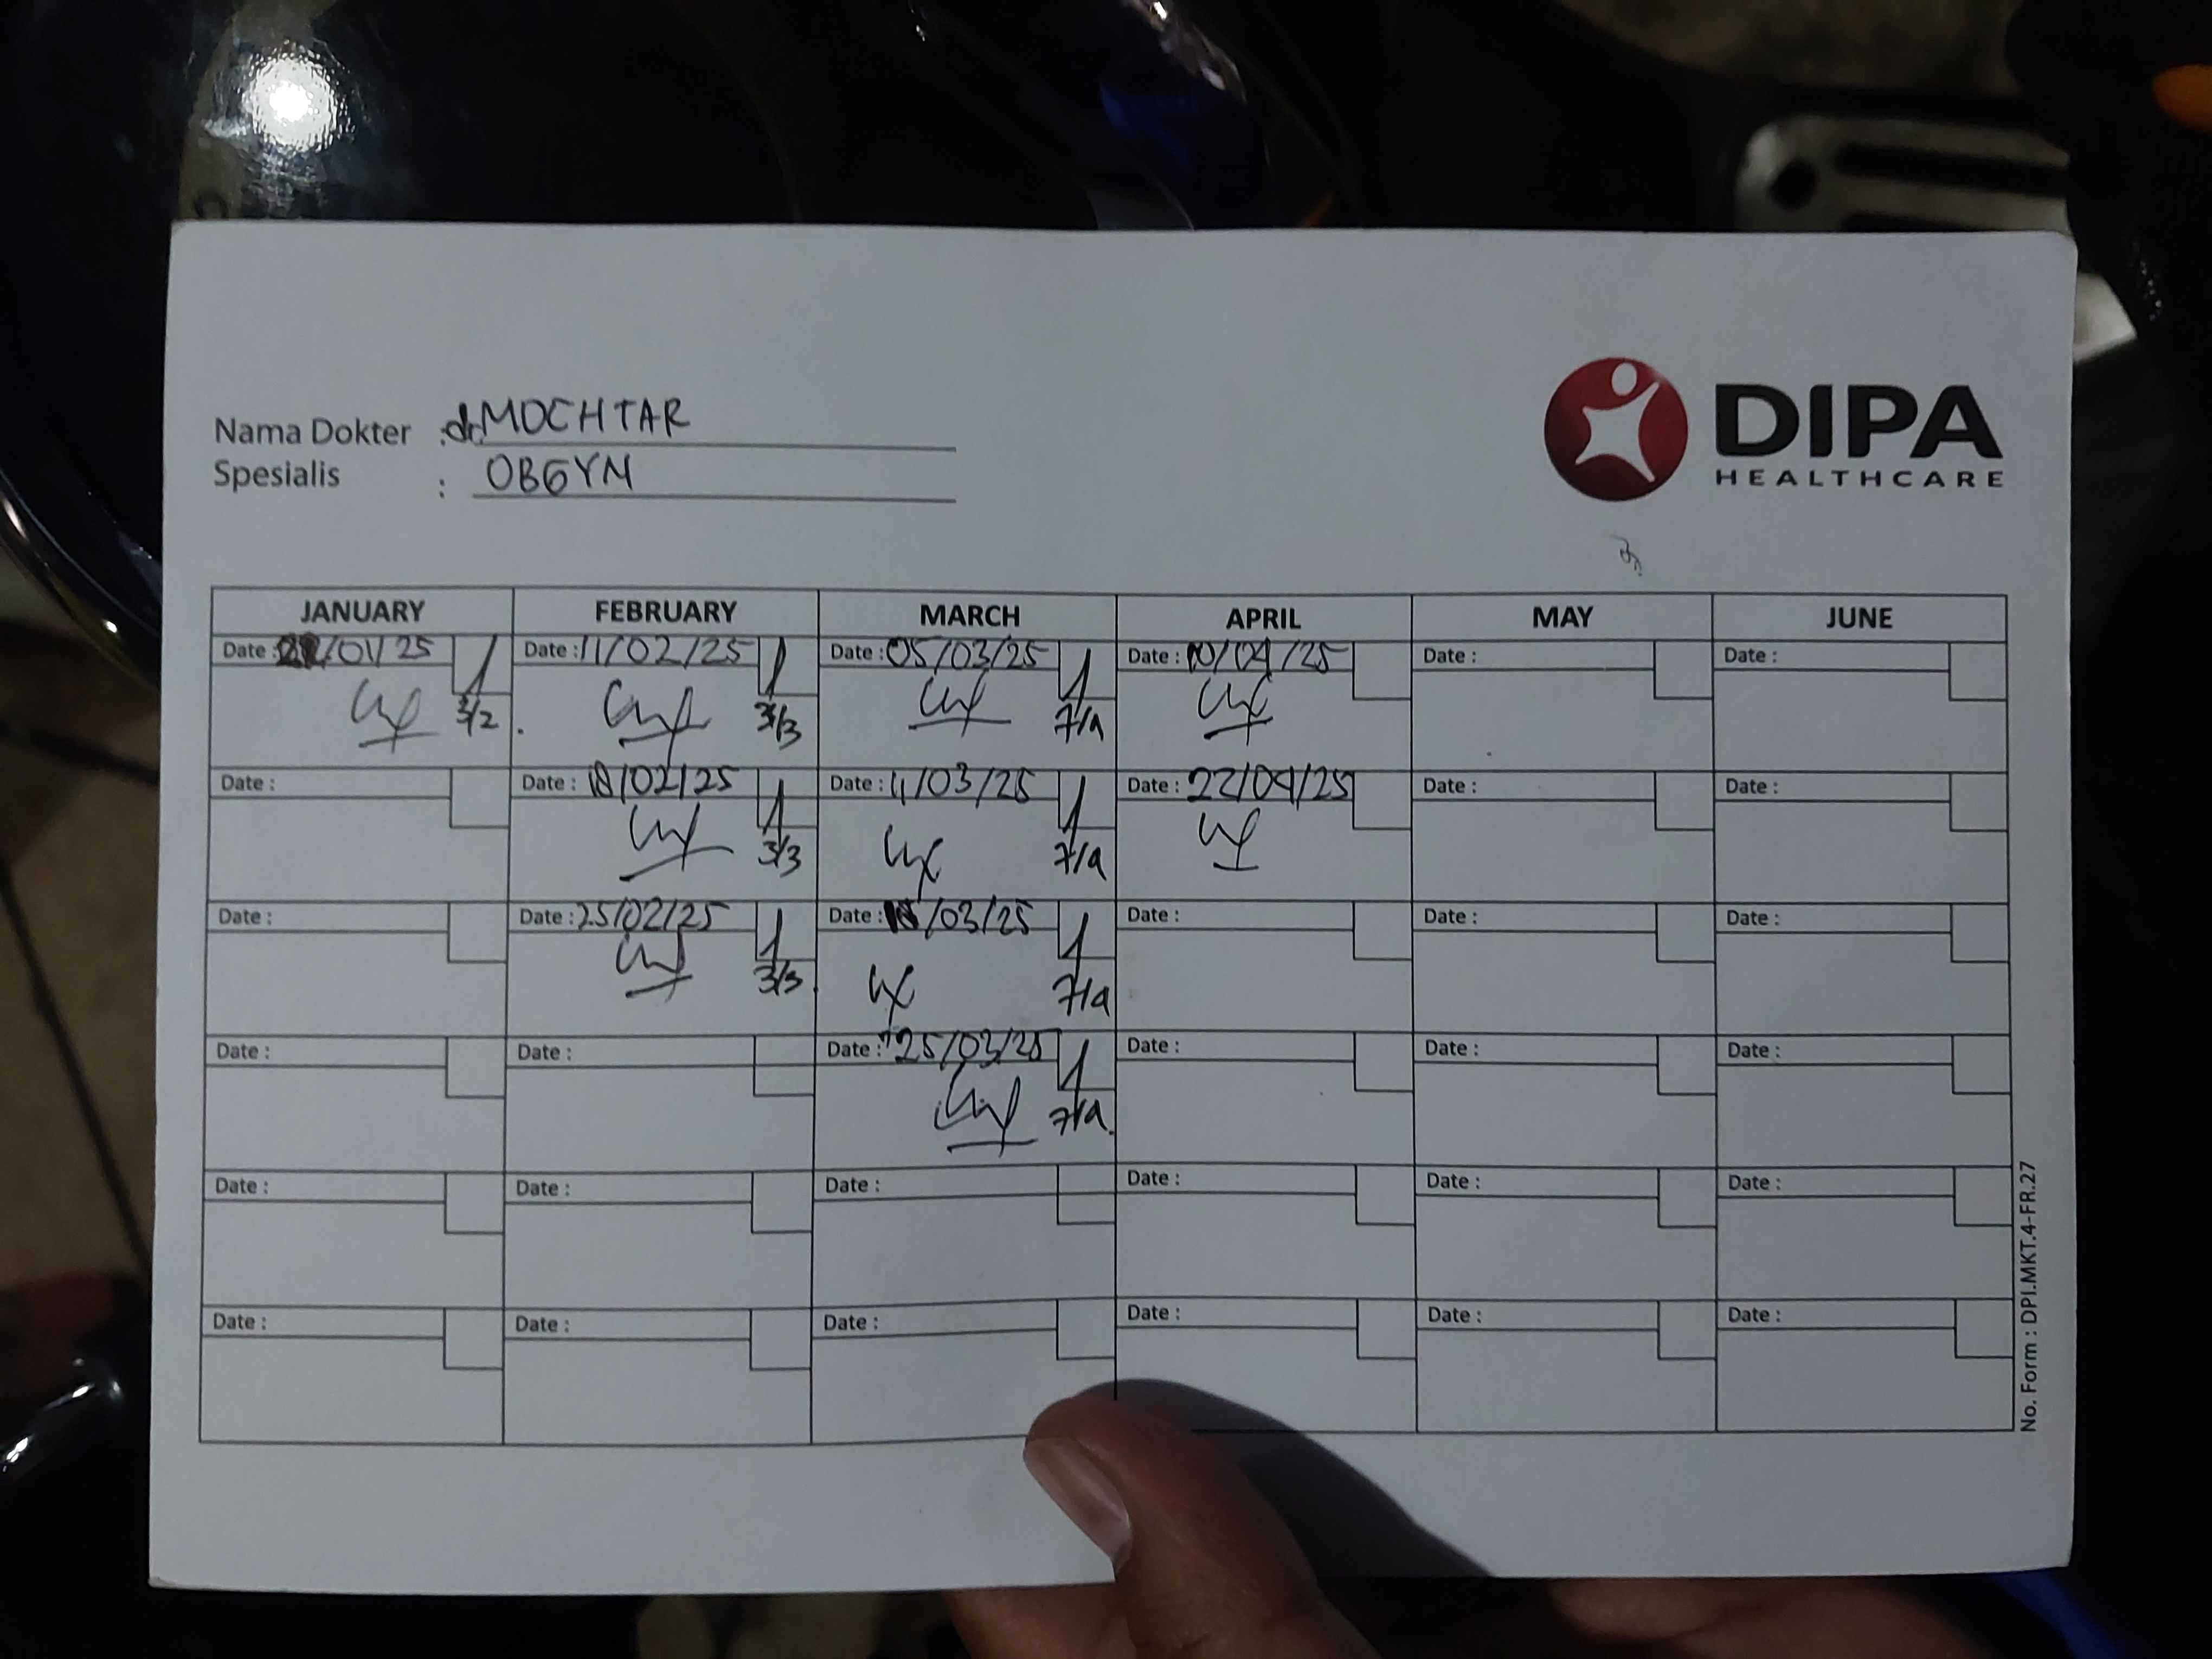 DIPA
HEALTHCARE
Nama Dokter : dr. MOCHTAR
Spesialis : OBGYN
JANUARY FEBRUARY MARCH APRIL MAY JUNE
Date : /01/25 Date : 11/02/25 Date : 05/03/25 Date : 10/04/25 Date : Date :
3/2 3/3 7/4
Date : Date : 18/02/25 Date : 11/03/25 Date : 22/04/25 Date : Date :
3/3 7/4
Date : Date : 25/02/25 Date : 18/03/25 Date : Date : Date :
3/3 7/4
Date : Date : Date : 25/03/25 Date : Date : Date :
7/4
Date : Date : Date : Date : Date : Date :
Date : Date : Date : Date : Date : Date :
No. Form : DPI.MKT.4-FR.27